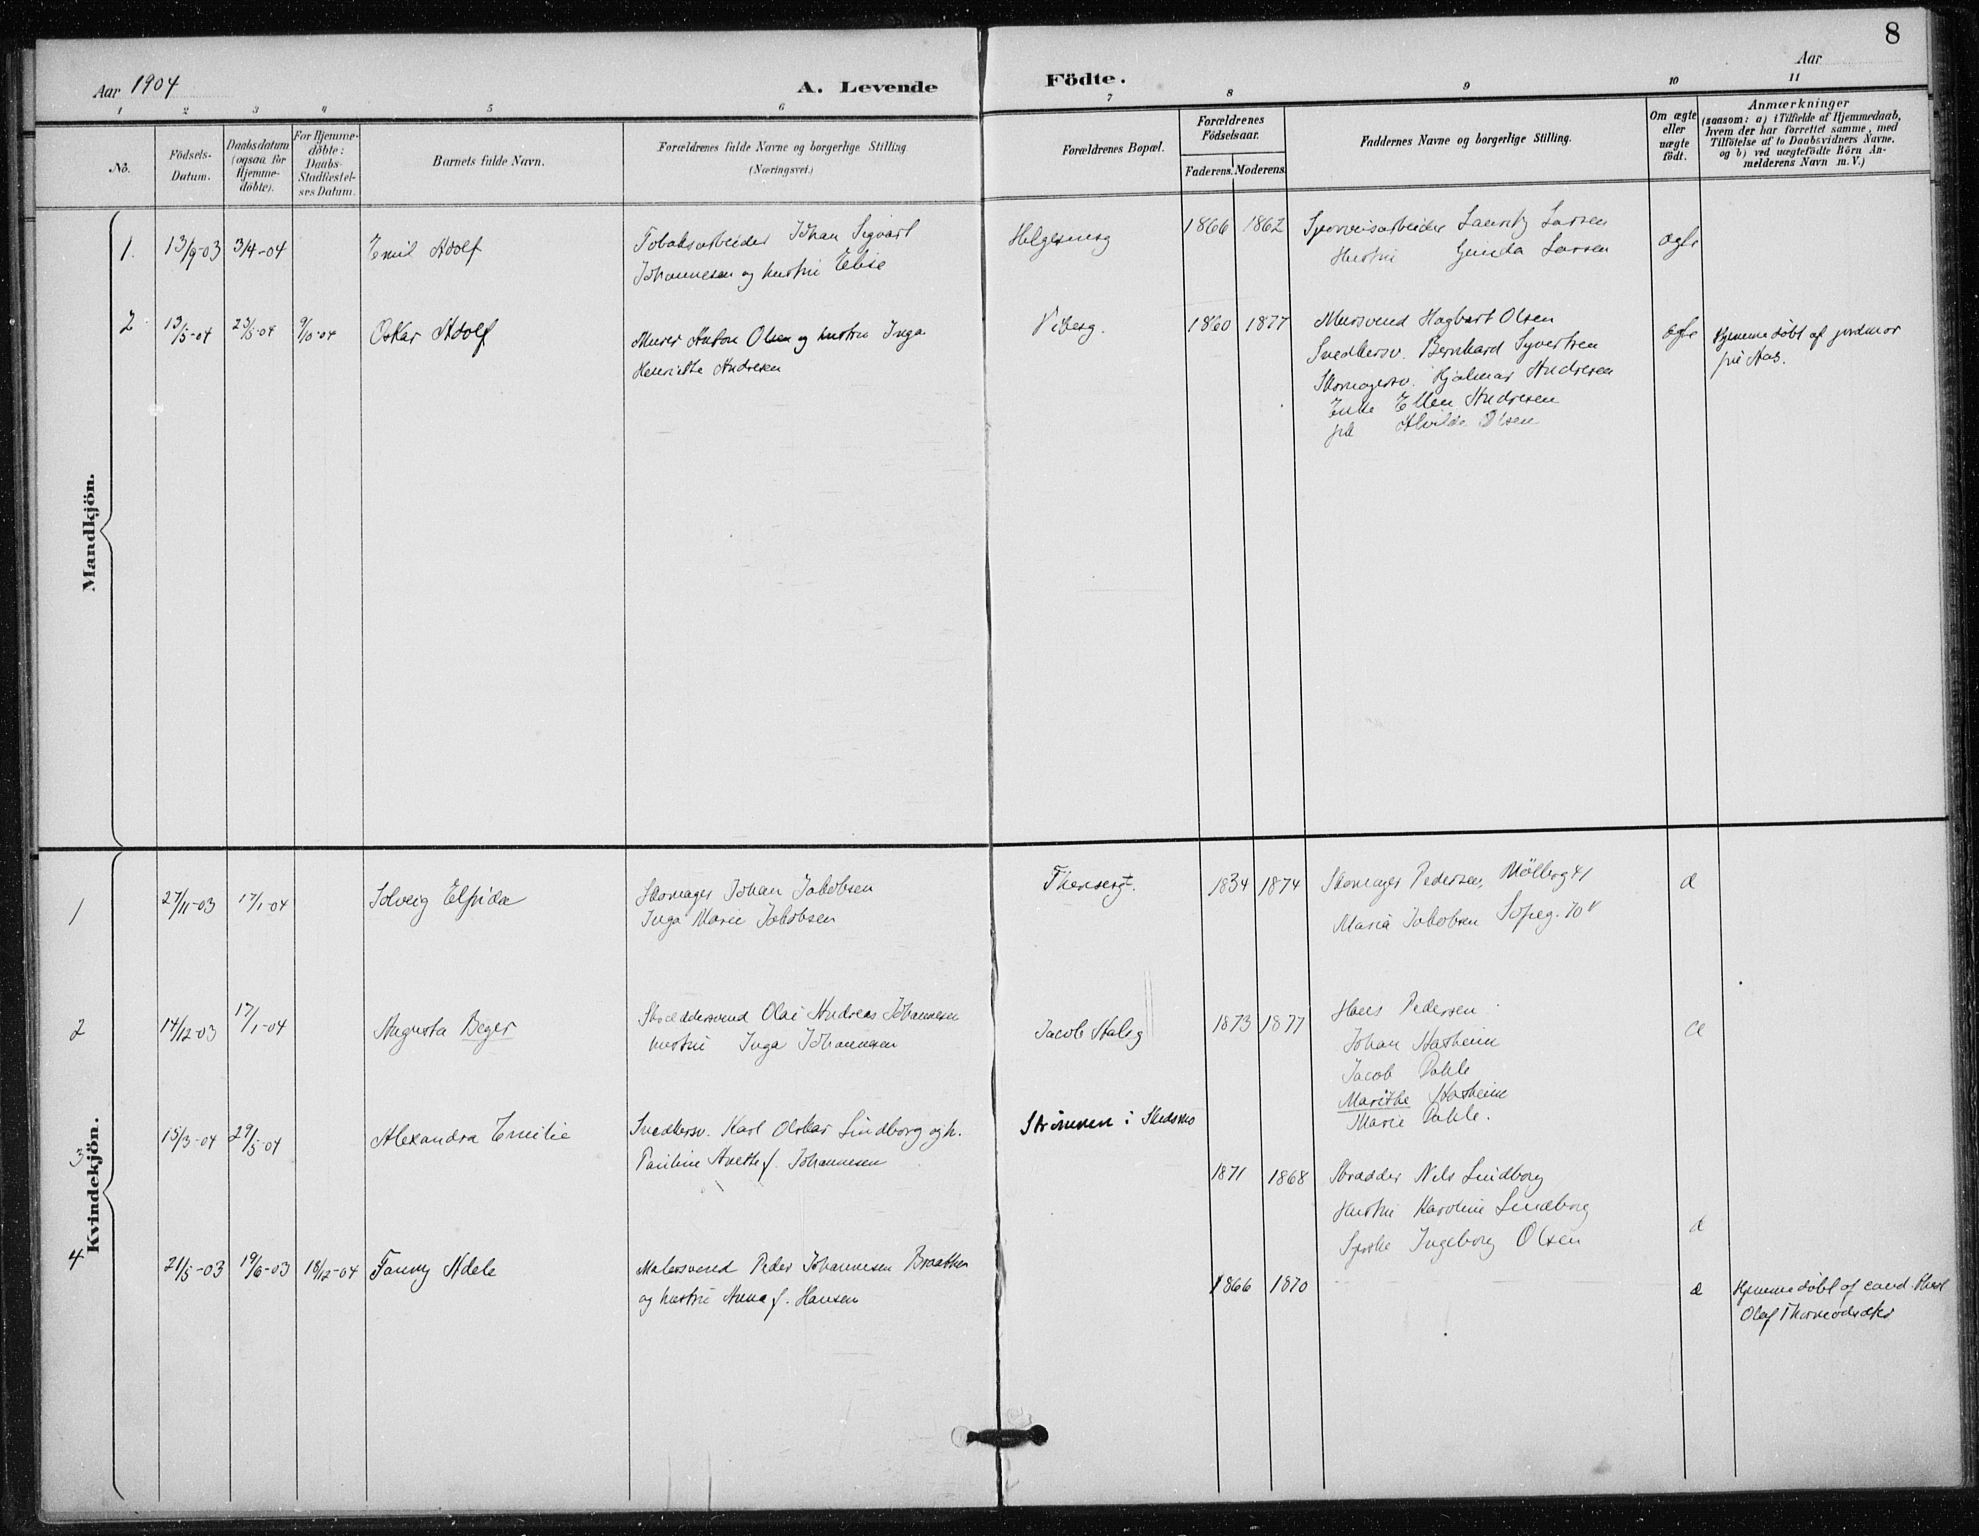 8
Aar 1904
A. Levende
Födte.
Aar
1 2 3 4 5 6 7 8 9 10 11
No.
Födsels-
Datum.
Daabsdatum
(ogsaa for
Hjemme-
döbte).
For Hjemme-
döbte:
Daabs-
Stadfæstel-
ses Datum.
Barnets fulde Navn.
Forældrenes fulde Navne og borgerlige Stilling
(Næringsvei.)
Forældrenes Bopæl.
Forældrenes
Födselsaar.
Faderens. Moderens.
Faddernes Navne og borgerlige Stilling.
Om ægte
eller
uægte
födt.
Anmærkninger
(saasom: a) i Tilfælde af Hjemmedaab,
hvem der har forrettet samme, med
Tilföielse af to Daabsvidners Navne,
og b) ved uægtefödte Börn An-
melderens Navn m. V.)
Mandkjön.
1. 13/9-03 3/4-04 Emil Adolf
Tobaksarbeider Johan Sigvart
Johannesen og hustru Elise
1866 1862
Sporveisarbeider Lauritz Larsen
Hustru Gunda Larsen
ægte
2 13/5-04 23/5-04 9/10-04 Oskar Adolf
Murer Anton Olsen og hustru Inga
Henriette Andresen
Viberg.
1860 1877
Mursvend Hagbart Olsen
Snedkersv. Bernhard Syvertsen
Skomagersv. Hjalmar Andresen
Enke Ellen Andresen
frk Alvilde Olsen
ægte
Hjemmedøbt af jordmor
frk Aas.
Kvindekjön.
1 27/11-03 17/1-04 Solveig Elfrida
Skomager Johan Jakobsen
Inga Marie Jakobsen
Theresegt.
1834 1874
Skomager Pedersen, Mölberg 41
Maria Jakobsen Sofieg. 70 v
æ
2 14/12-03 17/1-04 Augusta Beger
Skræddersvend Olai Andreas Johannesen
hustru Inga Johannesen
Jacob Halsg
1873 1877
Hans Pedersen
Johan Aasheim
Jacob Dahle
Marithe Aasheim
Marie Dahle.
æ
3 15/3-04 29/5-04 Alexandra Emilie
Snedkersv. Karl Oskar Lindborg og h.
Pauline Anette f. Johannesen
Strömmen i Skedsmo
1871 1868
Skrædder Nils Lindborg
Hustru Karoline Lindborg
Frøken Ingeborg Olsen
æ
4 21/5-03 19/6-03 18/12-04 Fanny Adele
Malersvend Peder Johannesen Braathen
og hustru Anna f. Hansen
1866 1870
æ
Hjemmedøbt af cand. theol
Olaf Thormodsæter